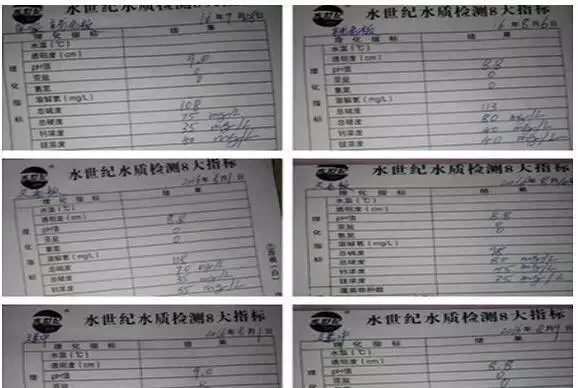 水世纪水质检测8大指标
16年7月
理化指标 结果
水温(℃)
透明度(cm)
pH值 9.0
亚盐 0
氨氮
溶解氧(mg/L)
总碱度 108
总硬度 75 mg/L
钙浓度 35 mg/L
镁浓度 40 mg/L
水世纪水质检测8大指标
16年8月6日
理化指标 结果
水温(℃)
透明度(cm)
pH值 8.8
亚盐 0
氨氮 0
溶解氧(mg/L)
总碱度 113
总硬度 80 mg/L
钙浓度 40 mg/L
镁浓度 40 mg/L
水世纪水质检测8大指标
2016年8月1日
理化指标 结果
水温(℃)
透明度(cm)
pH值 8.8
亚盐 0
氨氮 0
溶解氧(mg/L)
总碱度 118
总硬度 mg/L
钙浓度 mg/L
35 mg/L
水世纪水质检测8大指标
理化指标 结果
水温(℃)
透明度(cm)
pH值 8.8
亚盐 0
氨氮
溶解氧(mg/L)
总碱度 98
总硬度 80 mg/L
钙浓度 45 mg/L
镁浓度 35 mg/L
水世纪水质检测8大指标
2016年8月1日
理化指标 结果
水温(℃)
透明度(cm)
pH值 9.0
亚盐
水世纪水质检测8大指标
2016年8月9日
理化指标 结果
水温(℃)
透明度(cm)
pH值 8.8
亚盐 0